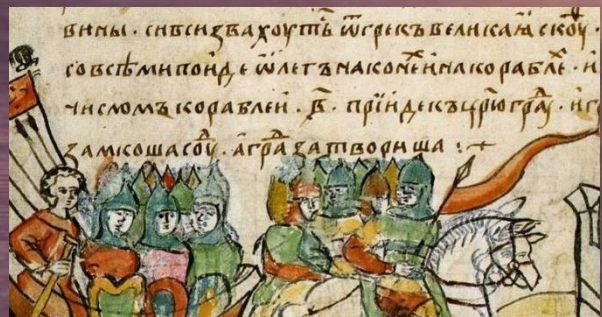 вины · сивсизвахоуть ѿгрекъ великаѧ скоу ·
совсѣмипоиде ѡлегънаконеинакорабле · и
числомъкораблеи · в҃ · прїидекъцр҃югра · иг
замкошасоу · аградзатвориша :